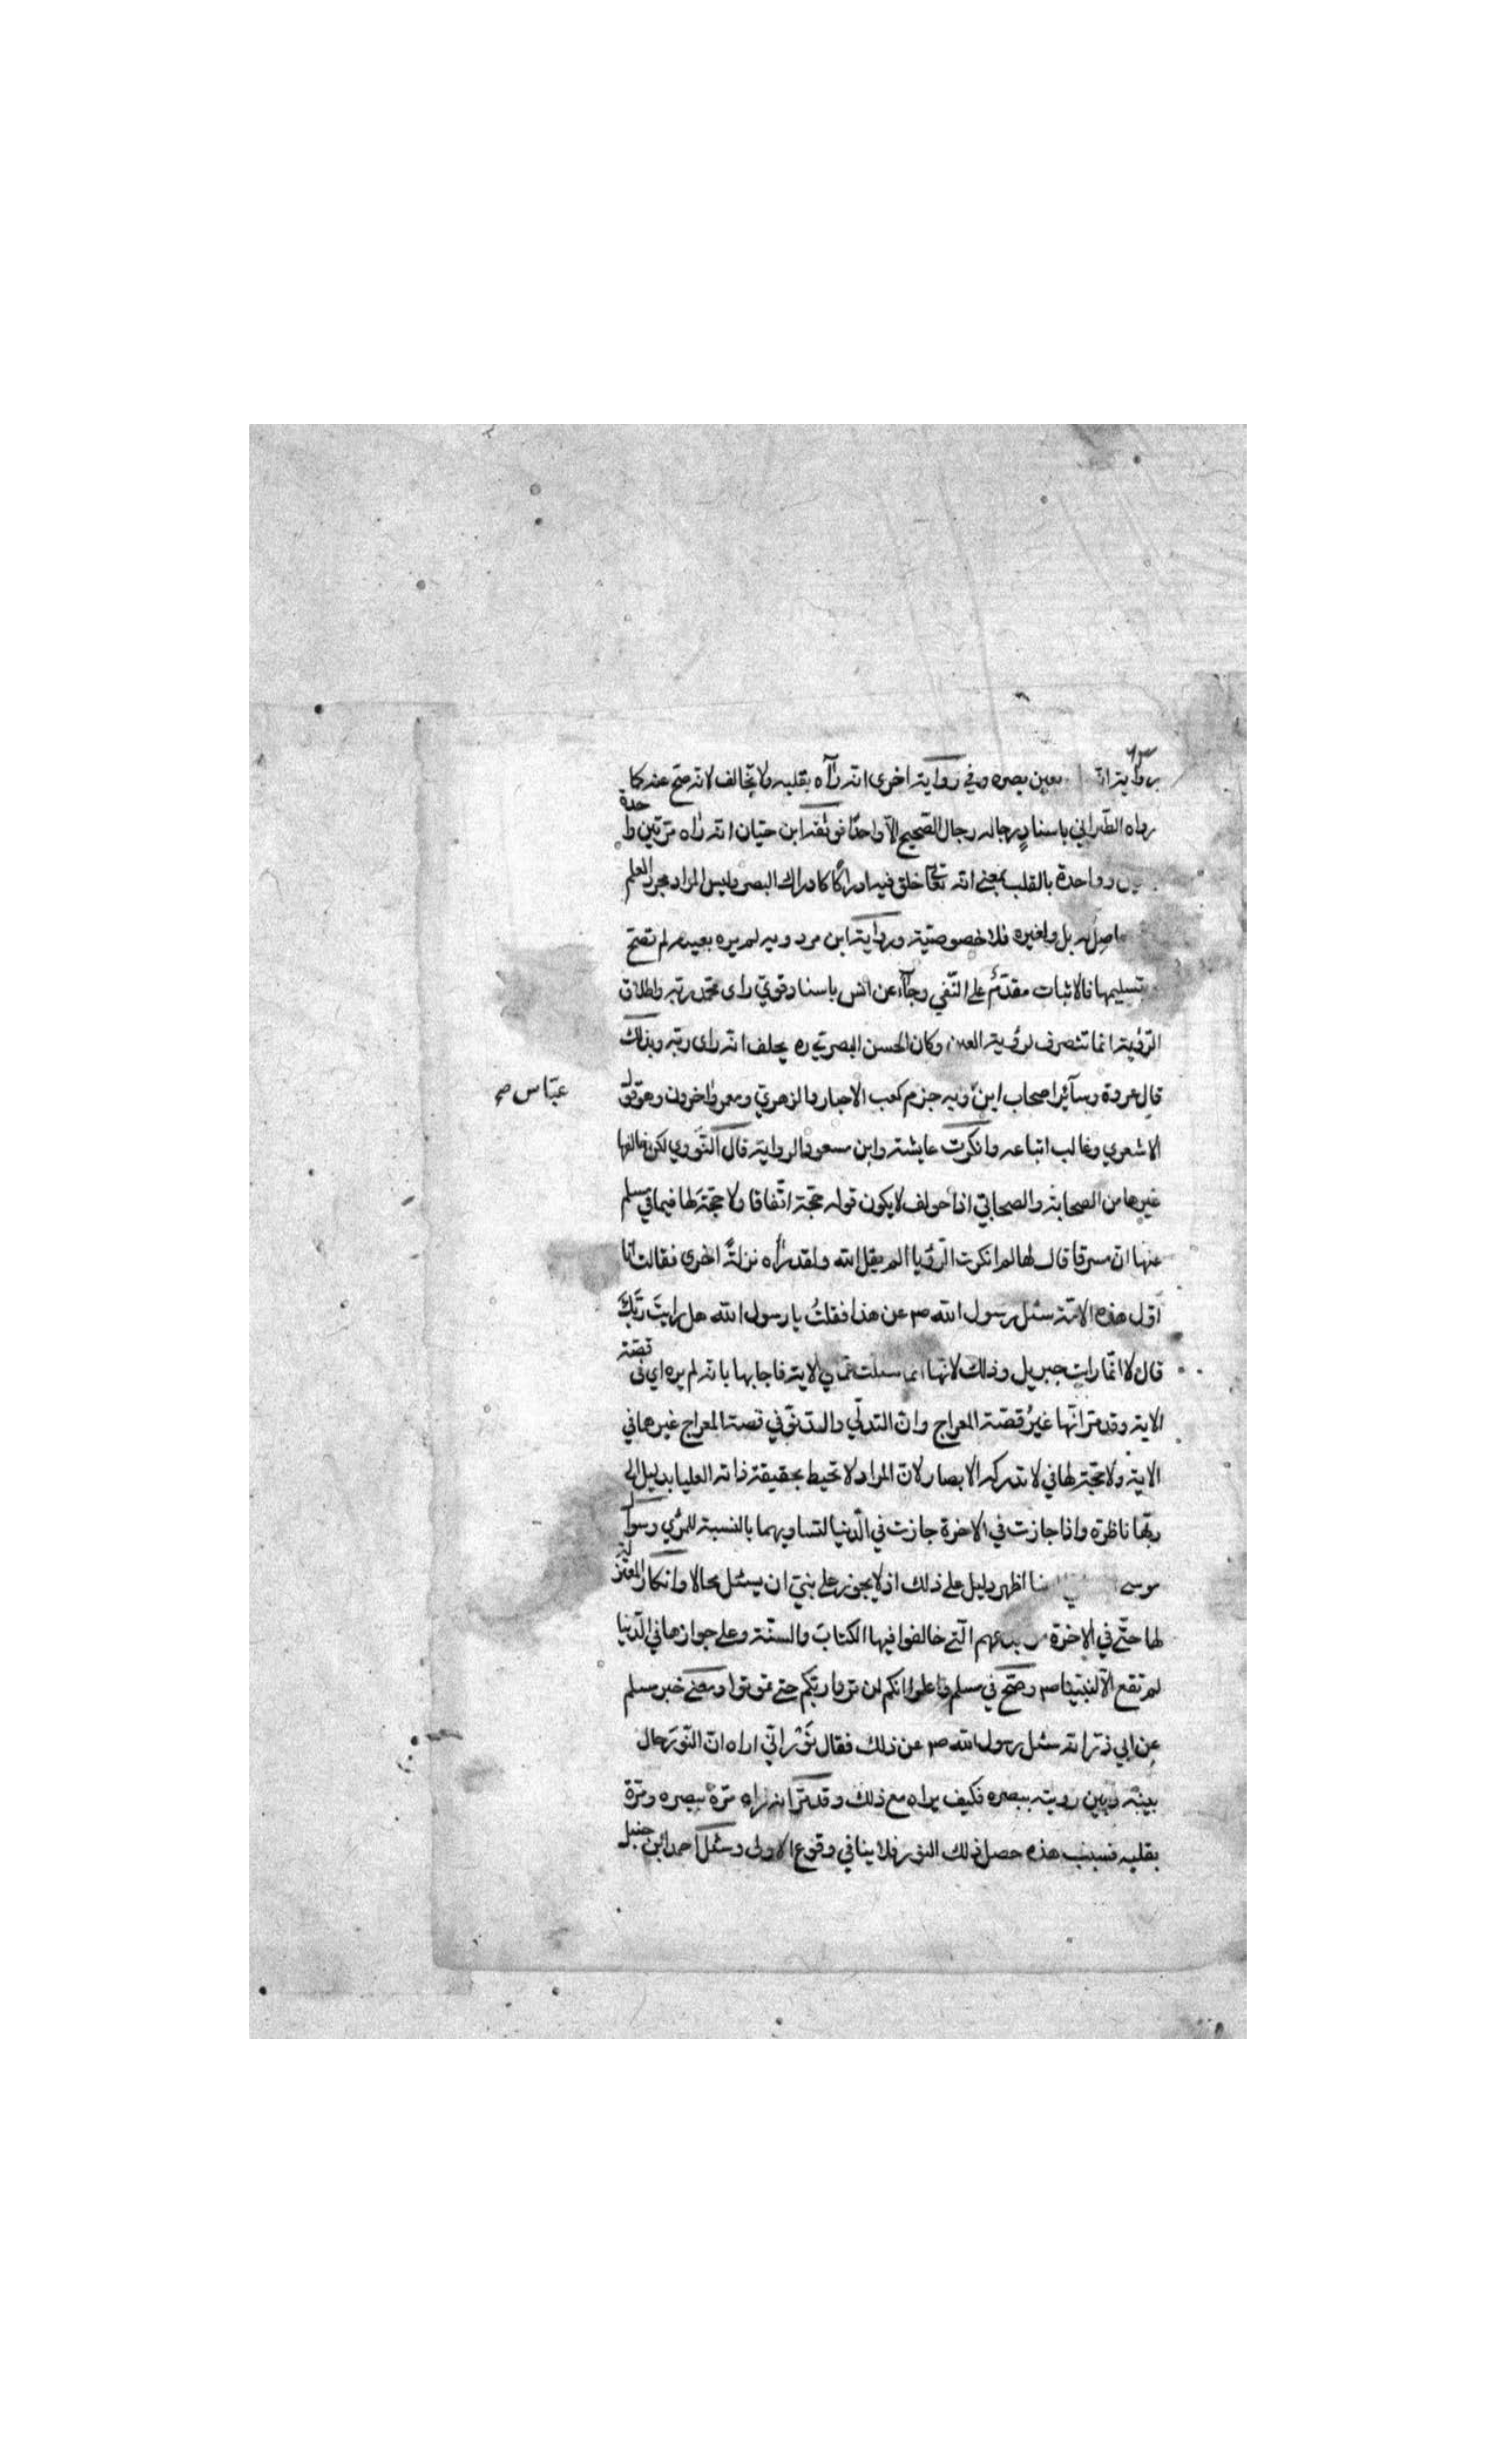 ٦٣
برواية انه بعين بصره وفي رواية اخرى انه رآه بقلبه ولا تخالف لانه صح عنه كما
رواه الطبراني باسناد رجاله رجال الصحيح الا واحدًا فوثقه ابن حبان انه راه مرتين واحدة
وواحدة بالقلب بمعنى انه تعالى خلق فيه ادراكًا كادراك البصر وليس المراد مجرد العلم
حاصل له بل ولغيره فلا خصوصية ورواية ابن مردويه لم يره بعينه لم تصح
تسليمها فالاثبات مقدّم على النّفي وجآء عن انس باسناد قوي راى محمد ربه واطلاق
الرؤية انما تنصرف لرؤية العين وكان الحسن البصري ره يحلف انه راى ربه وبذلك
قال عروة وسآئر اصحاب ابن وبه جزم كعب الاحبار والزهري ومعمر واخرون وهو قول
عبّاس صح
الاشعري وغالب اتباعه وانكرت عايشة وابن مسعود الرواية قال النّووي لكن خالفها
غيرها من الصحابة والصحابي اذا خولف لا يكون قوله حجّة اتّفاقا ولا حجّة لها فيما في مسلم
عنها انّ مسرقا قال لها لم انكرت الرؤيا الم يقل الله ولقد رأه نزلةً اخرى فقالت انا
اول هذه الامّة سئل رسول الله صم عن هذا فقلتُ يا رسول الله هل رايتَ ربّكَ
قال لا انّما رايت جبريل وذلك لانها انما سئلت عمّا في الاية فاجابها بانه لم يره اي في قصّة
الاية وقد مرّ انّها غيرُ قصّة المعراج وانّ التدلّي والدنوّ في قصة المعراج غيرها في
الاية ولا حجّة لها في لا تدركه الابصار لانّ المراد لا تحيط بحقيقة ذاته العليا بدليل الى
ربّها ناظرة واذا جازت في الاخرة جازت في الدّنيا لتساويهما بالنسبة للمرئي وسؤال
موسى اظهر دليل على ذلك اذ لا يجوز على نبيّ ان يسئل محالا وانكار المعتزلة
لها حتّى في الاخرة من بدعهم الّتي خالفوا فيها الكتابَ والسنّة وعلى جوازها في الدّنيا
لم تقع الّا لنبيّنا صم وصحّ في مسلم واعلموا انكم لن تروا ربّكم حتى تموتوا ومعنى خبر مسلم
عن ابي ذرّ انه سئل رسول الله صم عن ذلك فقال نُوْرٌ انّي اراه انّ النّورَ حال
بينه وبين رويته ببصره فكيف يراه مع ذلك وقد مرّ انه راه مرّة ببصره ومرّة
بقلبه فسبب هذه حصل ذلك النور فلا ينافي وقوع الاولى وسئل احمد ابن حنبل